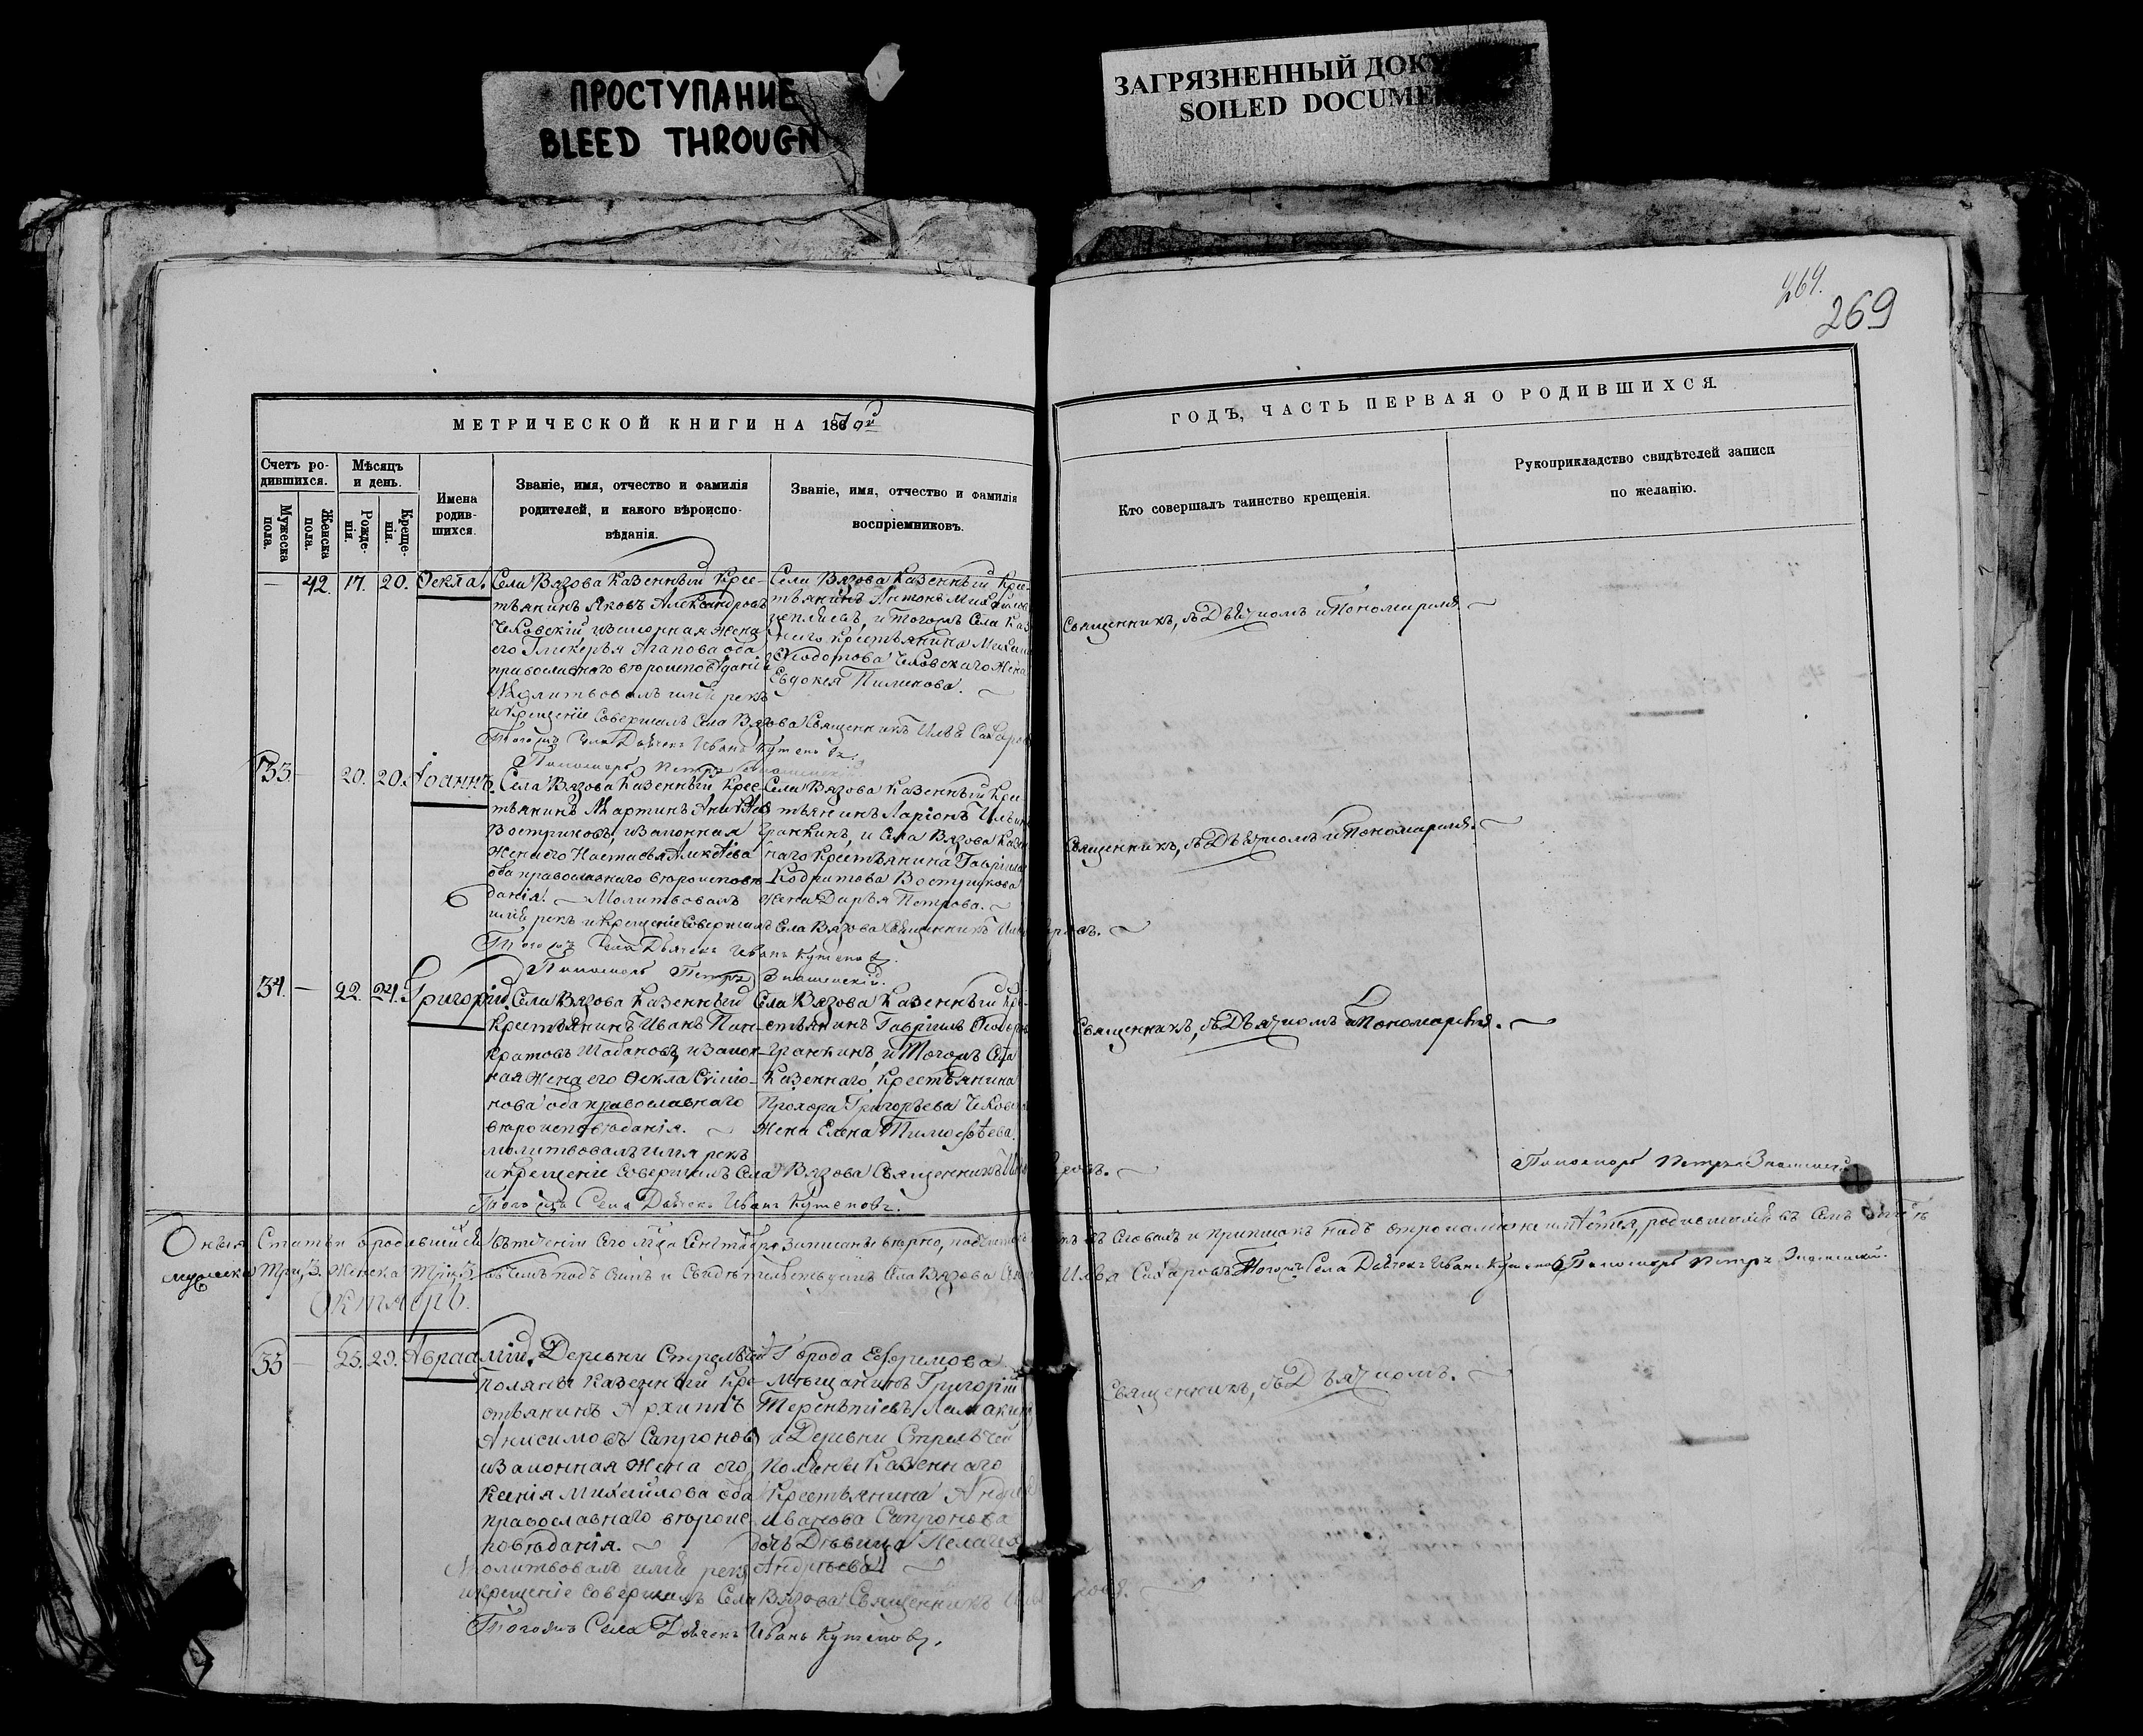 ПРОСТУПАНИЕ
BLEED THROUGN
ЗАГРЯЗНЕННЫЙ ДОКУ
SOILED DOCUME
464.
269
МЕТРИЧЕСКОЙ КНИГИ НА 1870й
ГОДЪ, ЧАСТЬ ПЕРВАЯ О РОДИВШИХСЯ.
Счетъ ро-
дившихся.
Мужеска
пола.
Женска
пола.
Мѣсяцъ
и день.
Рожде-
нія.
Креще-
нія.
Имена
родив-
шихся.
Званіе, имя, отчество и фамилія
родителей, и какого вѣроиспо-
вѣданія.
Званіе, имя, отчество и фамилія
воспріемниковъ.
Кто совершалъ таинство крещенія.
Рукоприкладство свидѣтелей записи
по желанію.
— 42. 17. 20. Ѳекла.
Села Вязова Казенный Крес-
тьянинъ Яковъ Александровъ
Чековскій и законная жена
его Гликерья Агапова оба
православнаго вѣроисповѣданія
Молитвовалъ имя рекъ
и крещеніе совершалъ Села Вязова Священникъ Илья Сахаровъ
Тогожъ Села Дьячекъ Иванъ Кутеповъ.
Пономарь Петръ Знаменскій
Села Вязова Казенный Кре-
стьянинъ Антонъ Михайлов
и тогожъ Села Каз
наго крестьянина
Ѳеодотова Чековскаго жена
Евдокея
Священникъ, съ Дьячкомъ и Пономаремъ.
33. — 20. 20. Іоаннъ.
Села Вязова Казенный Крес-
тьянинъ Мартинъ
Востриковъ, и законная
жена его Настасья
оба православнаго вѣроисповѣ-
данія. Молитвовалъ
имя рекъ и крещеніе совершалъ Села Вязова Священникъ
Тогожъ Села Дьячекъ Иванъ Кутеповъ.
Пономарь Петръ Знаменскій.
Села Вязова Казенный Кре-
стьянинъ Ларіонъ Ильин
Гранкинъ, и Села Вязова Казен
наго Крестьянина Гавріила
Кодратова Вострикова
жена Дарья Петрова.
Священникъ, съ Дьячкомъ и Пономаремъ.
34. — 22. 24. Григорій.
Села Вязова Казенный
Крестьянинъ Иванъ Пан-
кратовъ Шабановъ, и закон-
ная жена его Ѳекла Симо-
нова оба православнаго
вѣроисповѣданія.
молитвовалъ имя рекъ
и крещеніе совершалъ Села Вязова Священникъ
Тогожъ Села Дьячекъ Иванъ Кутеповъ.
Села Вязова Казенный Кре-
стьянинъ Гавріилъ Ѳеодоров
Гранкинъ, и Тогожъ Села
Казеннаго Крестьянина
Прохора Григорьева Чековск
жена Елена Тимоѳѣева.
Священникъ, съ Дьячкомъ и Пономаремъ.
Пономарь Петръ Знаменскій
Оныя Статьи о родившихся въ теченіи сего м-ца Сентября записаны вѣрно,
мужеска Три, 3. Женска Три, 3. въ чемъ подъ симъ и свидѣтельствуемъ Села Вязова Илья Сахаровъ Тогожъ Села Дьячекъ Иванъ Кутеповъ Пономарь Петръ Знаменскій.
Октябрь.
35 — 25. 29. Авраамій.
Деревни Стрелѣчьи
Поляны Казенный Кре-
стьянинъ Архипъ
Анисимовъ Сапроновъ
и законная жена его
Ксенія Михайлова оба
православнаго вѣроис-
повѣданія.
Молитвовалъ имя рекъ
и крещеніе совершалъ Села Вязова Священникъ
Тогожъ Села Дьячекъ Иванъ Кутеповъ.
Города Ефремова
Мѣщанинъ Григорій
Терентіевъ
и Деревни Стрелѣчей
Поляны Казеннаго
Крестьянина Андрея
Иванова Сапронова
дочь Дѣвица Пелагея
Андрѣева
Священникъ, съ Дьячкомъ.